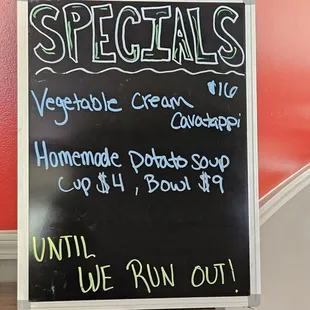 SPECIALS
Vegetable Cream $16
Cavatappi
Homemade potato soup
Cup $4, Bowl $9
UNTIL
WE RUN OUT!